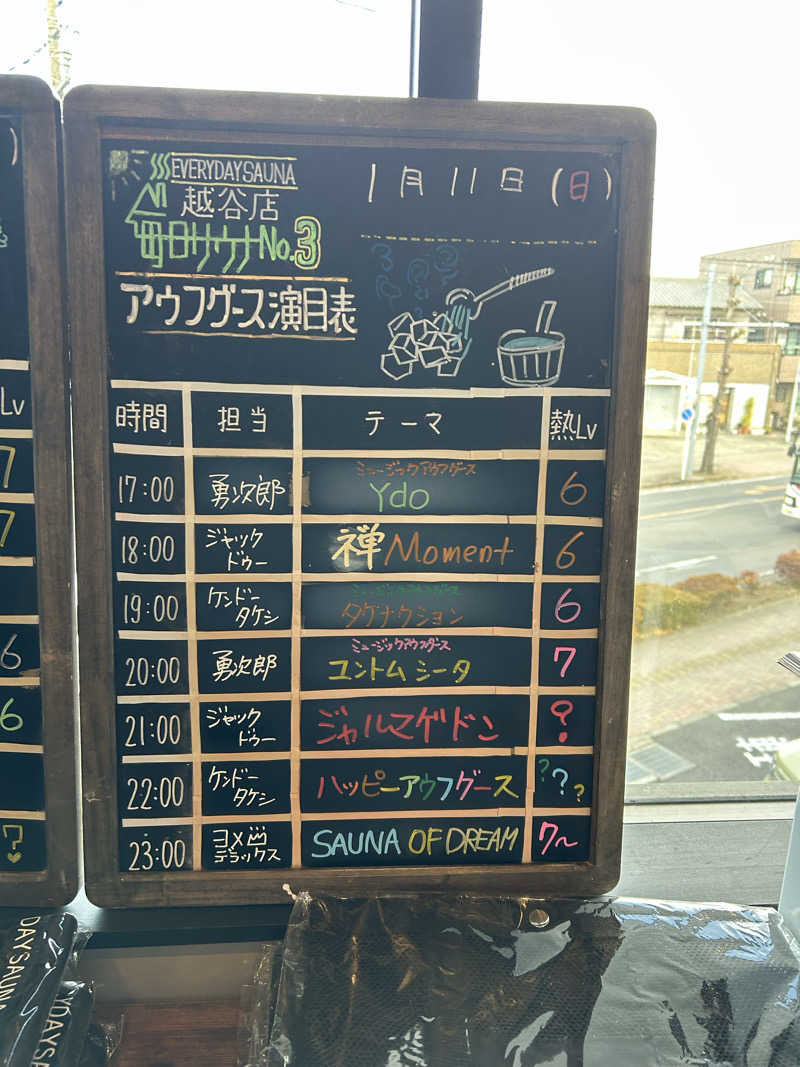 EVERYDAYSAUNA
越谷店
毎日サウナNo.3
1月11日(日)
アウフグース演目表
時間 担当 テーマ 熱Lv
17:00 勇次郎 ミュージックアウフグース Ydo 6
18:00 ジャックドゥー 禅Moment 6
19:00 ケンドータケシ ミュージックアウフグース タグナクション 6
20:00 勇次郎 ミュージックアウフグース ユントムシータ 7
21:00 ジャックドゥー ジャルマゲドン ?
22:00 ケンドータケシ ハッピーアウフグース ???
23:00 デラックス SAUNA OF DREAM 7~
Lv
7
7
6
6
?
DAYSAUNA
YDAYS